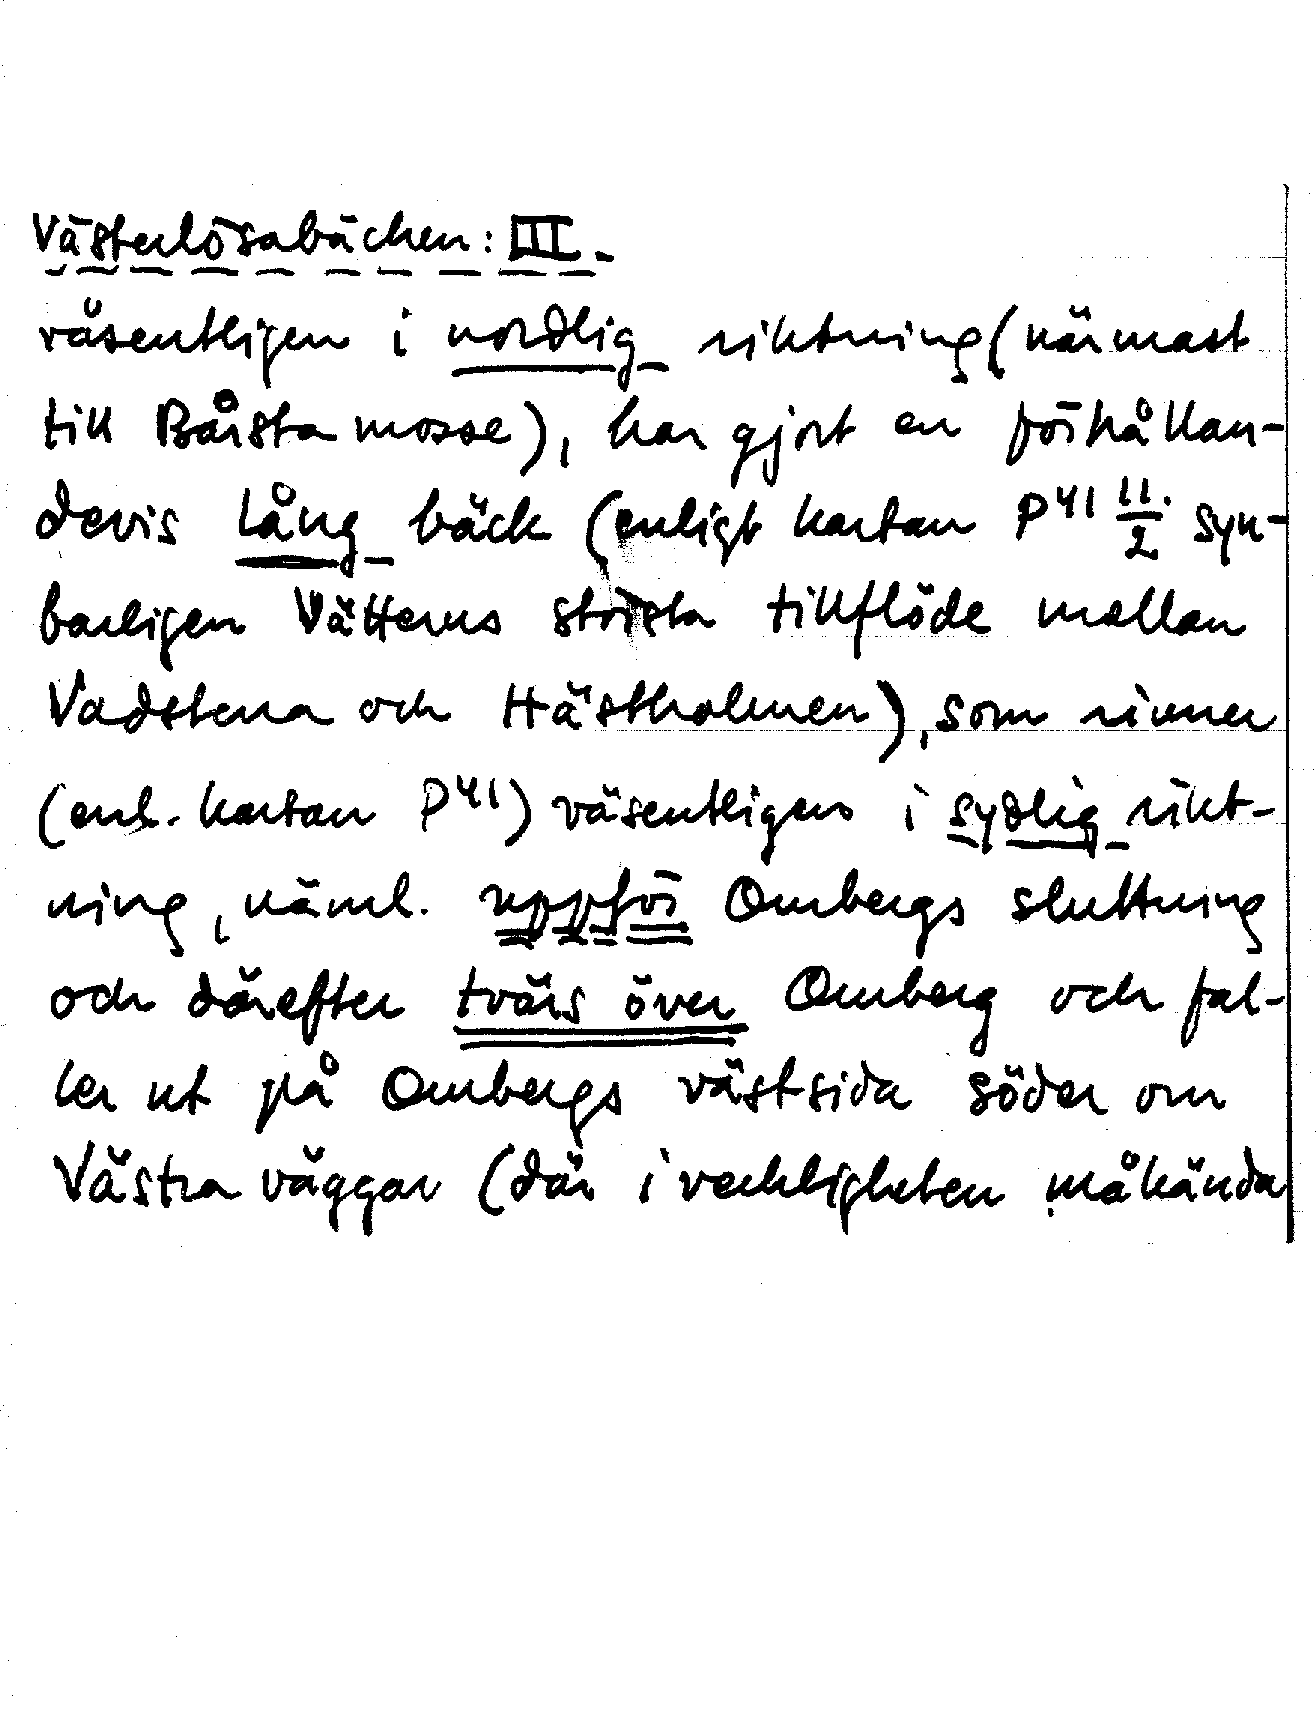 Västerlösabäcken: III.
väsentligen i nordlig riktning (närmast
till Bårsta mosse), har gjort en förhållan-
devis lång bäck (enligt kartan P41 11/2 syn-
barligen Vätterns största tillflöde mellan
Vadstena och Hästholmen), som rinner
(enl. kartan P41) väsentligen i sydlig rikt-
ning, näml. uppför Ombergs sluttning
och därefter tvärs över Omberg och fal-
ler ut på Ombergs västsida söder om
Västra väggar (där i verkligheten måhända